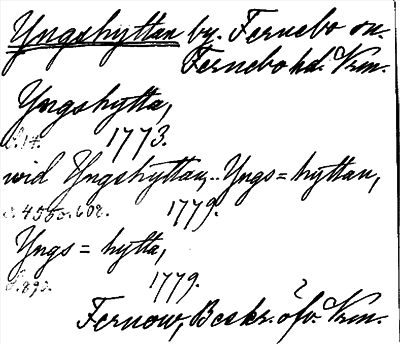 Yngshyttan by. Fernebo sn.
Fernebo hd. Vrm.
Yngshytta,
s.14. 1773.
wid Yngshyttan,.. Yngs=hyttan,
s. 455o.602. 1779.
Yngs=hytta,
s.893. 1779.
Fernow, Beskr. öfv. Vrm.